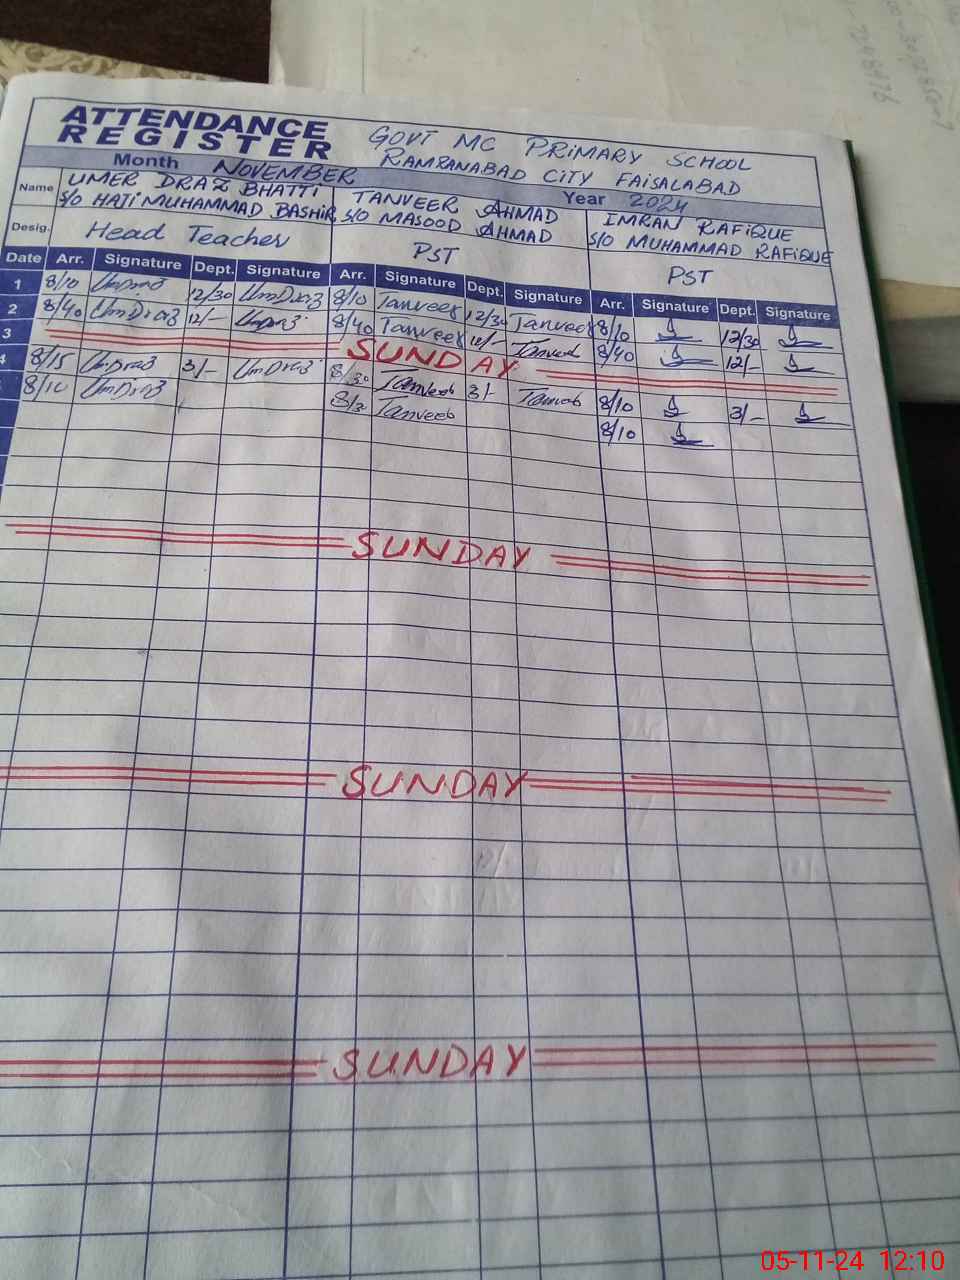 ATTENDANCE REGISTER
GOVT MC PRIMARY SCHOOL
RAMZANABAD CITY FAISALABAD
Month NOVEMBER Year 2024
Name UMER DRAZ BHATTI TANVEER AHMAD IMRAN RAFIQUE
S/O HATI MUHAMMAD BASHIR S/O MASOOD AHMAD S/O MUHAMMAD RAFIQUE
Desig. Head Teacher PST PST
Date Arr. Signature Dept. Signature Arr. Signature Dept. Signature Arr. Signature Dept. Signature
1 8/10 UmDraz 12/30 UmDraz 8/10 Tanveer 12/30 Tanveer 8/10 12/30
2 8/40 UmDraz 12/- UmDraz 8/40 Tanveer 12/- Tanveer 8/40 12/-
3 SUNDAY
4 8/15 UmDraz 3/- UmDraz 8/30 Tanveer 3/- Tanveer 8/10 3/-
8/10 UmDraz Tanveer 8/10
SUNDAY
SUNDAY
SUNDAY
05-11-24 12:10